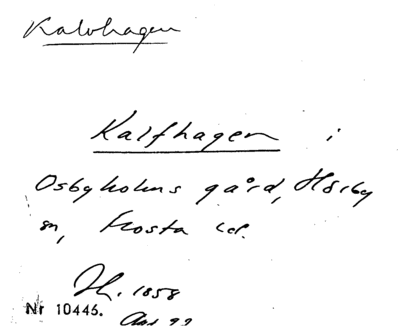 Kalvhagen
Kalfhagen i
Osbyholms gård, Hörby
sn, Frosta hd.
1858
Nr 10446.